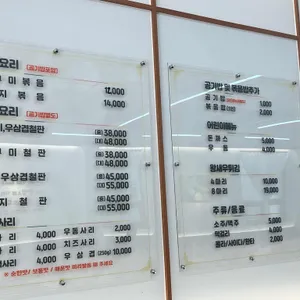 요리 (공기밥포함)
미 볶 음 12,000
지 볶 음 14,000
요리 (공기밥별도)
,우삼겹철판 (중) 38,000
(대) 48,000
미 철 판 (중) 38,000
(대) 48,000
우삼겹철판 (중) 45,000
(대) 55,000
지 철 판 (중) 45,000
(대) 55,000
사리
사 리 4,000 우 동 사 리 2,000
리 4,000 치 즈 사 리 3,000
리 4,000 우 삼 겹 (250g) 10,000
※ 순한맛/ 보통맛 / 매운맛
공기밥 및 볶음밥추가
공 기 밥 1,000
볶 음 밥 2,000
어린이메뉴
돈 까 스 5,000
우 동 4,000
왕새우튀김
6 마리 10,000
9,000
주 류 / 음 료
소주/맥주 5,000
막걸리 4,000
콜라/사이다/환타 2,000